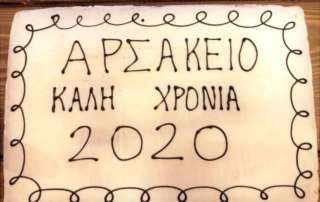 ΑΡΣΑΚΕΙΟ
ΚΑΛΗ ΧΡΟΝΙΑ
2020